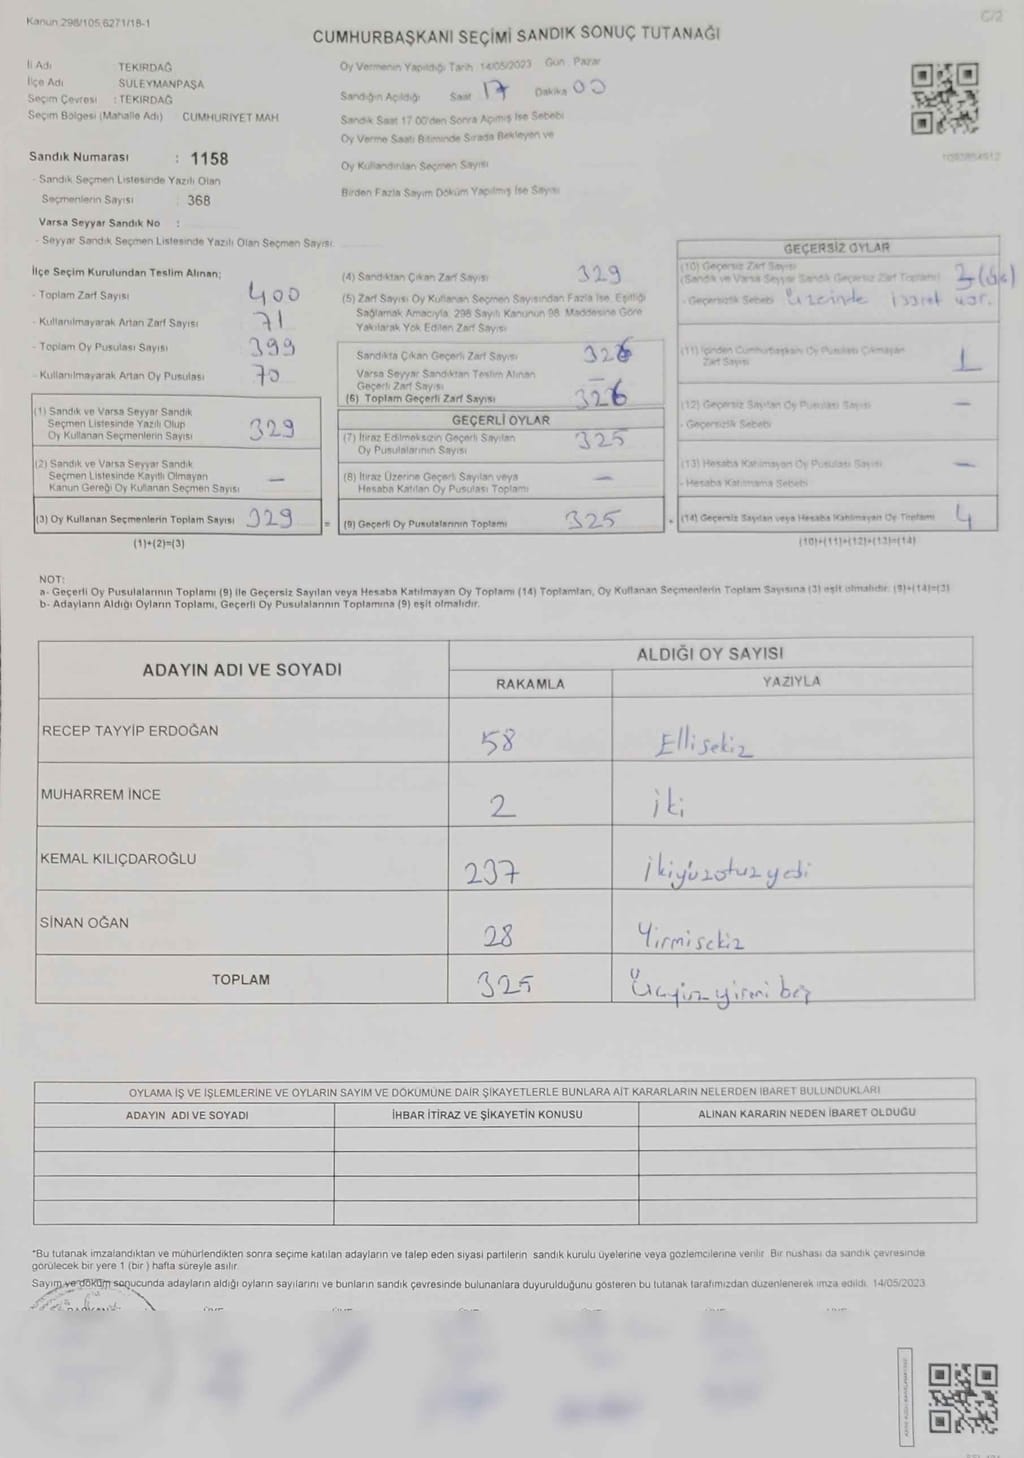 Kanun 298/105,6271/18-1
C/2
CUMHURBAŞKANI SEÇİMİ SANDIK SONUÇ TUTANAĞI
İl Adı : TEKİRDAĞ
İlçe Adı : SÜLEYMANPAŞA
Seçim Çevresi : TEKİRDAĞ
Seçim Bölgesi (Mahalle Adı) CUMHURİYET MAH
Sandık Numarası : 1158
- Sandık Seçmen Listesinde Yazılı Olan
Seçmenlerin Sayısı : 368
Varsa Seyyar Sandık No :
- Seyyar Sandık Seçmen Listesinde Yazılı Olan Seçmen Sayısı:
Oy Vermenin Yapıldığı Tarih 14/05/2023 Gün : Pazar
Sandığın Açıldığı Saat 17 Dakika 00
Sandık Saat 17.00'den Sonra Açılmış İse Sebebi
Oy Verme Saati Bitiminde Sırada Bekleyen ve
Oy Kullandırılan Seçmen Sayısı
Birden Fazla Sayım Döküm Yapılmış İse Sayısı
İlçe Seçim Kurulundan Teslim Alınan;
- Toplam Zarf Sayısı 400
- Kullanılmayarak Artan Zarf Sayısı 71
- Toplam Oy Pusulası Sayısı 399
- Kullanılmayarak Artan Oy Pusulası 70
(1) Sandık ve Varsa Seyyar Sandık
Seçmen Listesinde Yazılı Olup
Oy Kullanan Seçmenlerin Sayısı 329
(2) Sandık ve Varsa Seyyar Sandık
Seçmen Listesinde Kayıtlı Olmayan
Kanun Gereği Oy Kullanan Seçmen Sayısı —
(3) Oy Kullanan Seçmenlerin Toplam Sayısı 329 =
(1)+(2)=(3)
(4) Sandıktan Çıkan Zarf Sayısı 329
(5) Zarf Sayısı Oy Kullanan Seçmen Sayısından Fazla İse, Eşitliği
Sağlamak Amacıyla, 298 Sayılı Kanunun 98. Maddesine Göre
Yakılarak Yok Edilen Zarf Sayısı
Sandıkta Çıkan Geçerli Zarf Sayısı 326
Varsa Seyyar Sandıktan Teslim Alınan
Geçerli Zarf Sayısı —
(6) Toplam Geçerli Zarf Sayısı 326
GEÇERLİ OYLAR
(7) İtiraz Edilmeksizin Geçerli Sayılan
Oy Pusulalarının Sayısı 325
(8) İtiraz Üzerine Geçerli Sayılan veya
Hesaba Katılan Oy Pusulası Toplamı —
(9) Geçerli Oy Pusulalarının Toplamı 325 +
GEÇERSİZ OYLAR
(10) Geçersiz Zarf Sayısı
(Sandık ve Varsa Seyyar Sandık Geçersiz Zarf Toplamı) 3 (üç)
- Geçersizlik Sebebi Üzerinde işaret var.
(11) İçinden Cumhurbaşkanı Oy Pusulası Çıkmayan
Zarf Sayısı 1
(12) Geçersiz Sayılan Oy Pusulası Sayısı —
- Geçersizlik Sebebi
(13) Hesaba Katılmayan Oy Pusulası Sayısı —
- Hesaba Katılmama Sebebi
(14) Geçersiz Sayılan veya Hesaba Katılmayan Oy Toplamı 4
(10)+(11)+(12)+(13)=(14)
NOT:
a- Geçerli Oy Pusulalarının Toplamı (9) ile Geçersiz Sayılan veya Hesaba Katılmayan Oy Toplamı (14) Toplamları, Oy Kullanan Seçmenlerin Toplam Sayısına (3) eşit olmalıdır. (9)+(14)=(3)
b- Adayların Aldığı Oyların Toplamı, Geçerli Oy Pusulalarının Toplamına (9) eşit olmalıdır.
ADAYIN ADI VE SOYADI
ALDIĞI OY SAYISI
RAKAMLA YAZIYLA
RECEP TAYYİP ERDOĞAN 58 Ellisekiz
MUHARREM İNCE 2 iki
KEMAL KILIÇDAROĞLU 237 ikiyüzotuzyedi
SİNAN OĞAN 28 Yirmisekiz
TOPLAM 325 Üçyüzyirmi beş
OYLAMA İŞ VE İŞLEMLERİNE VE OYLARIN SAYIM VE DÖKÜMÜNE DAİR ŞİKAYETLERLE BUNLARA AİT KARARLARIN NELERDEN İBARET BULUNDUKLARI
ADAYIN ADI VE SOYADI İHBAR İTİRAZ VE ŞİKAYETİN KONUSU ALINAN KARARIN NEDEN İBARET OLDUĞU
*Bu tutanak imzalandıktan ve mühürlendikten sonra seçime katılan adayların ve talep eden siyasi partilerin sandık kurulu üyelerine veya gözlemcilerine verilir. Bir nüshası da sandık çevresinde
görülecek bir yere 1 (bir) hafta süreyle asılır.
Sayım ve döküm sonucunda adayların aldığı oyların sayılarını ve bunların sandık çevresinde bulunanlara duyurulduğunu gösteren bu tutanak tarafımızdan düzenlenerek imza edildi. 14/05/2023